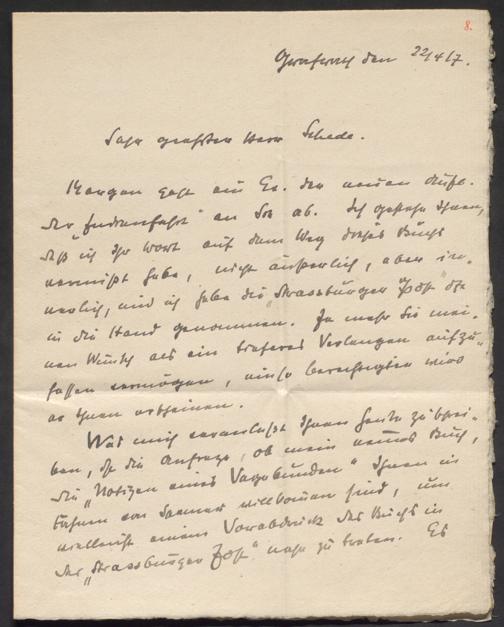 8.
Grafrath den 22/4/17.
Sehr geehrter Herr Schede.
Morgen geht ein Ex. der neuen Aufl.
der „Indienfahrt" an Sie ab. Ich gestehe Ihnen,
daß ich Ihr Wort auf dem Weg dieses Buchs
vermißt habe, nicht äußerlich, aber in-
nerlich, und ich habe die „Strassburger Post" oft
in die Hand genommen. Je mehr Sie mei-
nen Wunsch als ein tieferes Verlangen aufzu-
fassen vermögen, umso berechtigter wird
er Ihnen erscheinen.
Was mich veranlaßt Ihnen heute zu schrei-
ben, ist die Anfrage, ob mein neues Buch,
die „Notizen eines Vagabunden" Ihnen in
im Sommer willkommen sind, um
vielleicht einem Vorabdruck des Buchs in
der „Strassburger Post" nahe zu treten. Es